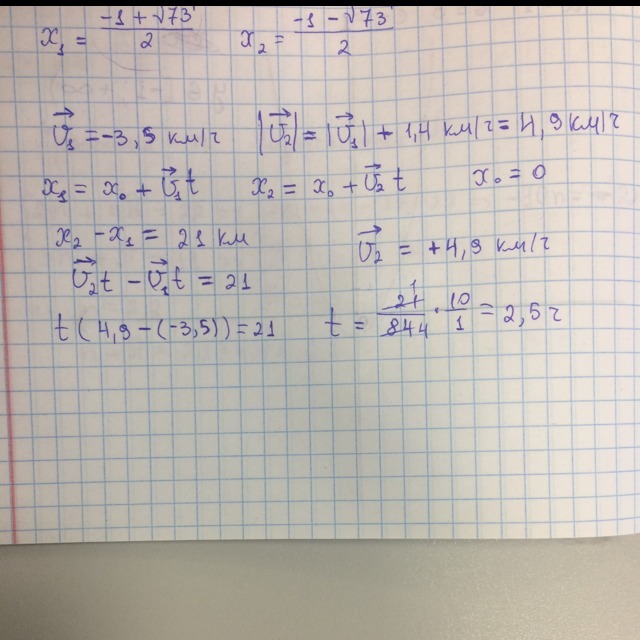 x₁ = (-1 + √73)/2    x₂ = (-1 - √73)/2
v⃗₁ = -3,5 км/ч    |v⃗₂| = |v⃗₁| + 1,4 км/ч = 4,9 км/ч
x₁ = x₀ + v⃗₁t    x₂ = x₀ + v⃗₂t    x₀ = 0
x₂ - x₁ = 21 км    v⃗₂ = +4,9 км/ч
v⃗₂t - v⃗₁t = 21
t(4,9-(-3,5)) = 21    t = 21/84 · 10/1 = 2,5 ч